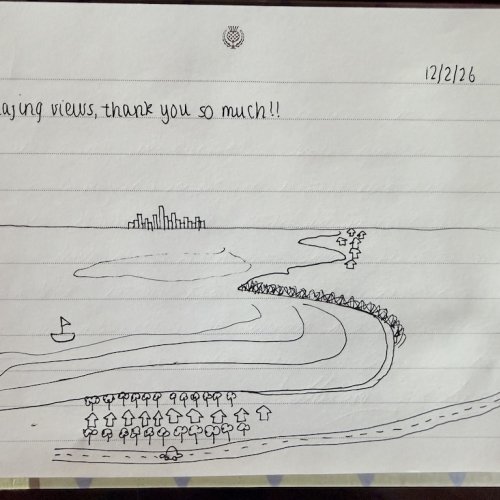 12/2/26
azing views, thank you so much!!